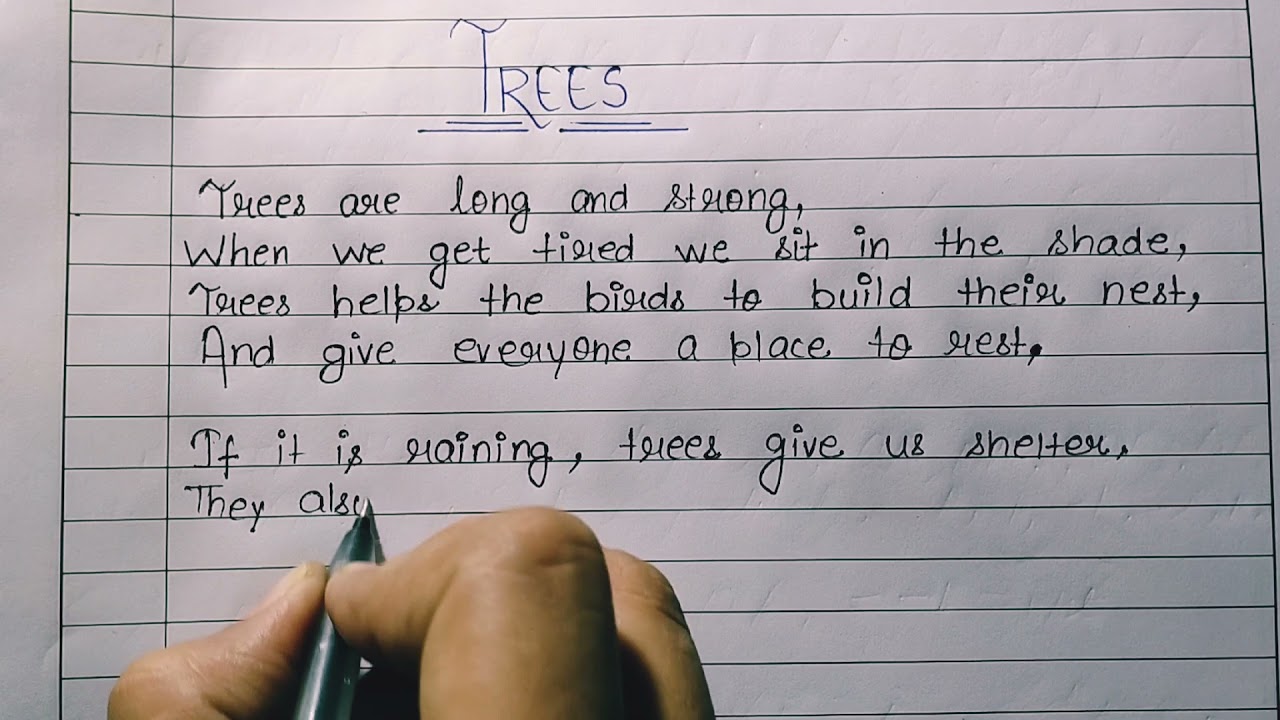 TREES
Trees are long and strong,
When we get tired we sit in the shade,
Trees helps the birds to build their nest,
And give everyone a place to rest,
If it is raining, trees give us shelter,
They also